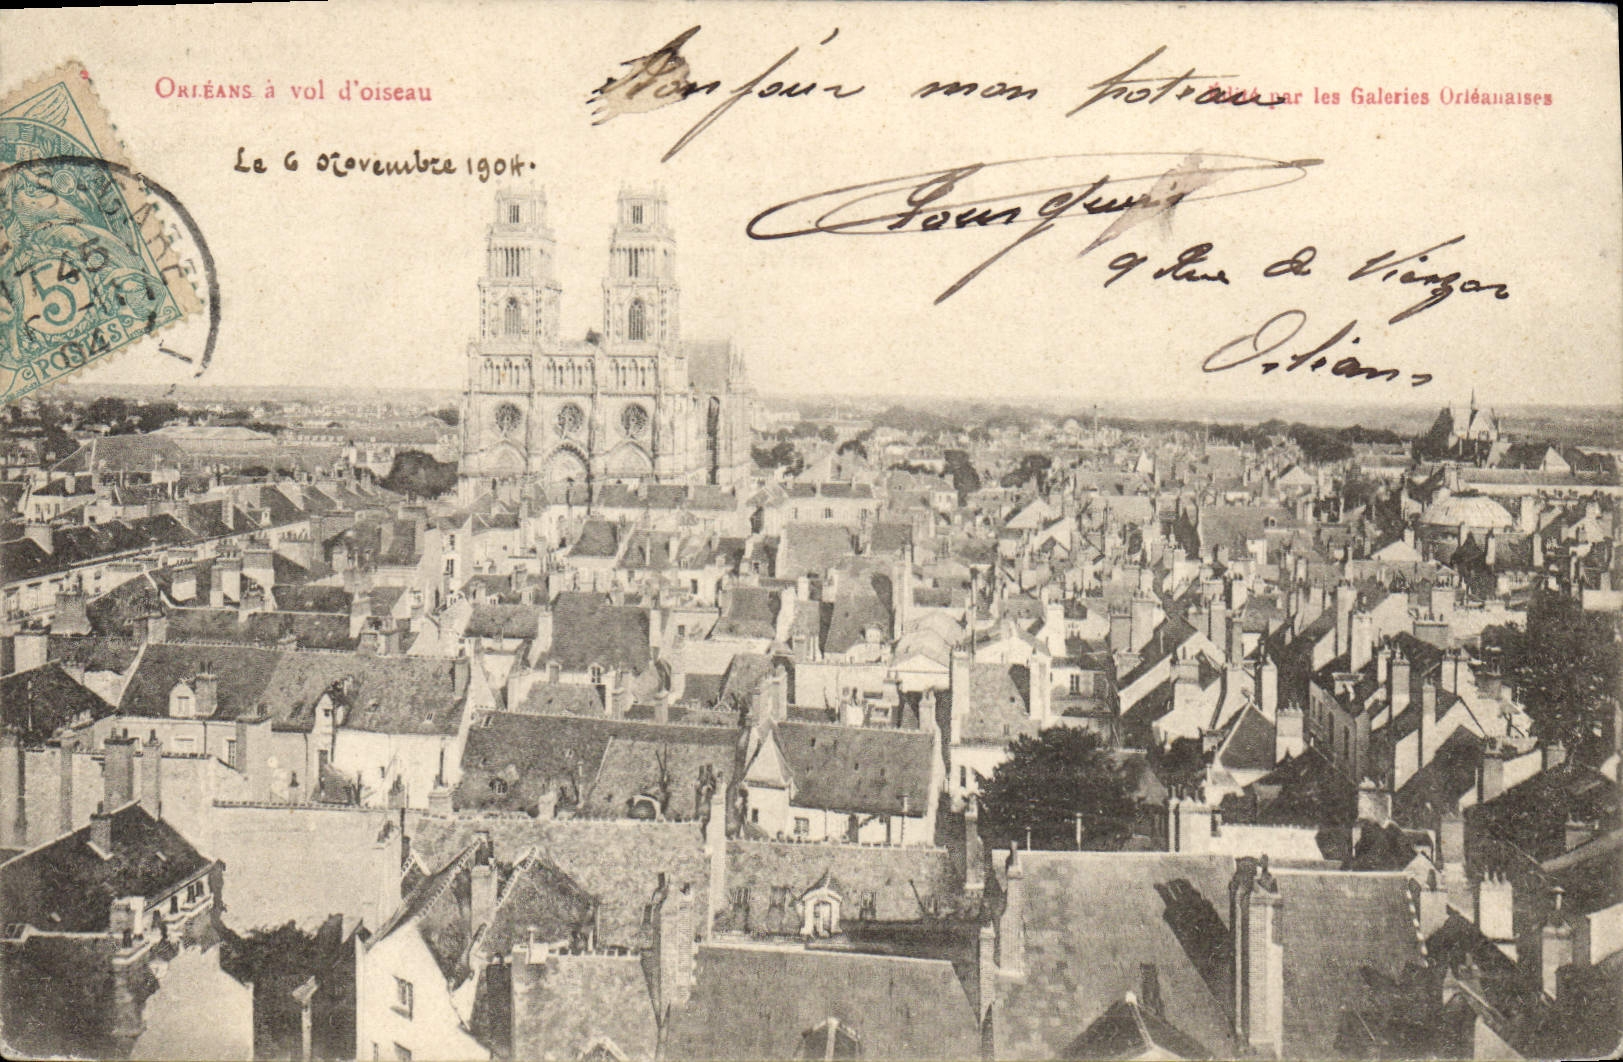 ORLÉANS à vol d'oiseau
Edité par les Galeries Orléanaises
Bonjour mon poteau
Le 6 Novembre 1904.
9 Rue de Vierzon
Orléans
5
POSTES
04